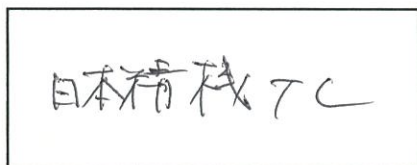 日本精機TC